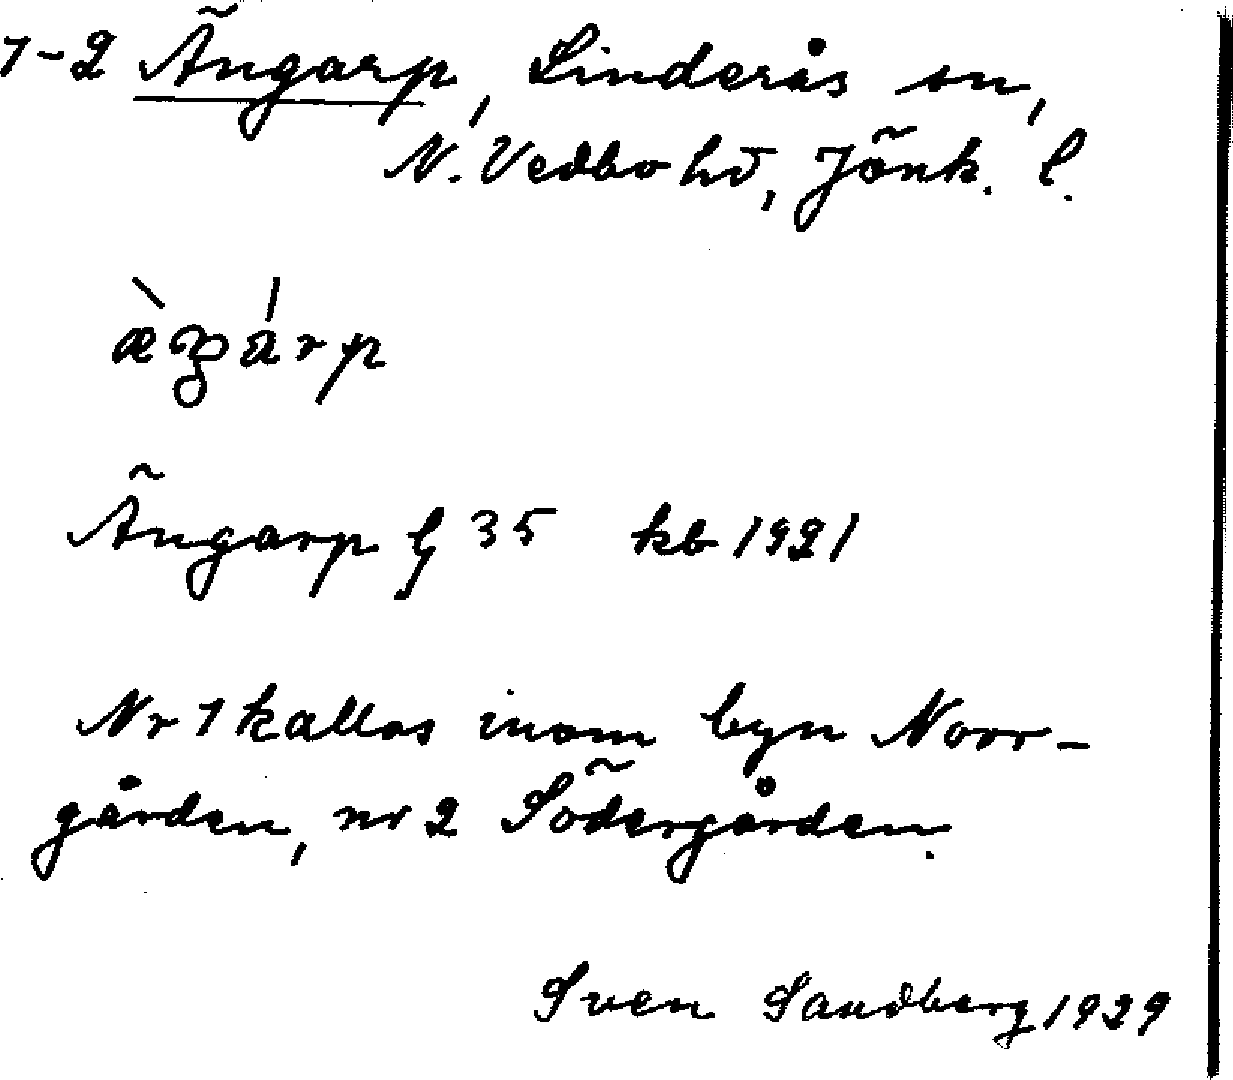 1-2 Ängarp, Linderås sn,
N. Vedbo hd, Jönk. l.
Ängarp § 35 kb 1921
Nr 1 kallas inom byn Norr-
gården, nr 2 Södergården.
Sven Sandberg 1929